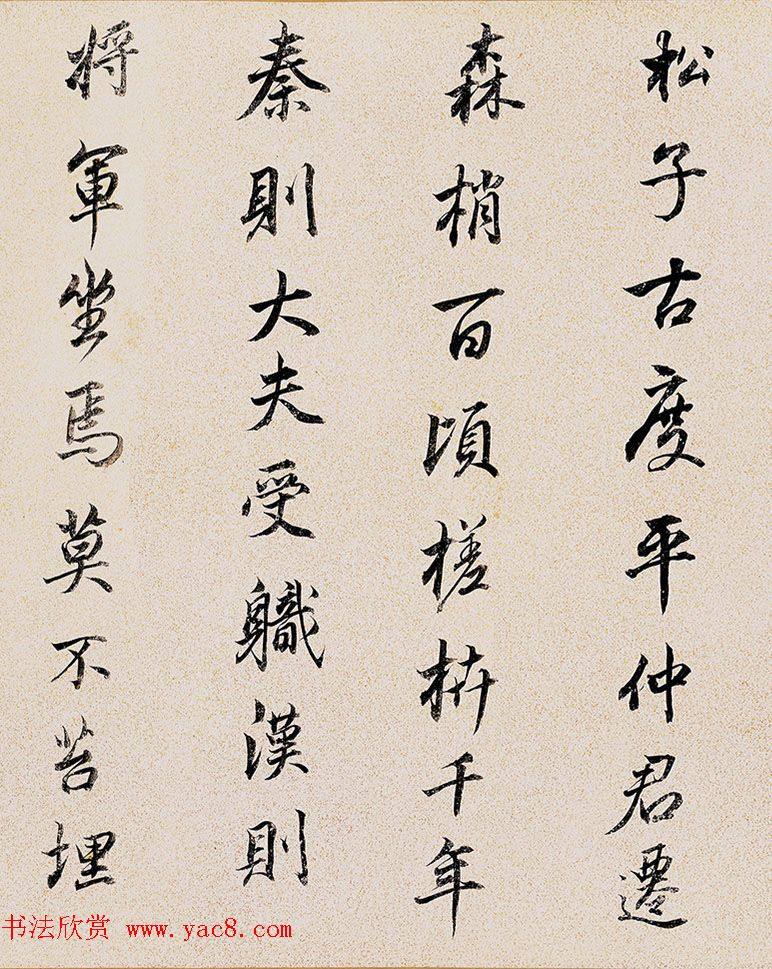 松子古度平仲君遷
森梢百頃槎枿千年
秦則大夫受職漢則
將軍坐焉莫不苔埋
书法欣赏 www.yac8.com